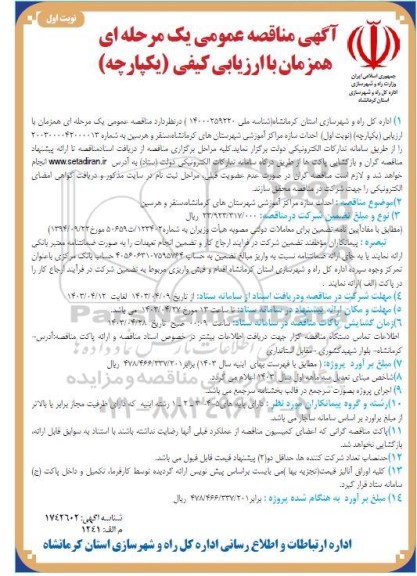 نوبت اول
آگهی مناقصه عمومی یک مرحله ای
همزمان با ارزیابی کیفی (یکپارچه)
جمهوری اسلامی ایران
وزارت راه و شهرسازی
اداره کل راه و شهرسازی
استان کرمانشاه
۱) اداره کل راه و شهرسازی استان کرمانشاه(شناسه ملی ۱۴۰۰۰۲۵۹۲۲۰) درنظردارد مناقصه عمومی یک مرحله ای همزمان با
ارزیابی (یکپارچه) (نوبت اول) احداث سازه مراکز آموزشی شهرستان های کرمانشاه،سنقر و هرسین به شماره ۲۰۰۳۰۰۰۰۴۲۰۰۰۰۱۳
را از طریق سامانه تدارکات الکترونیکی دولت برگزار نماید.کلیه مراحل برگزاری مناقصه از دریافت اسنادمناقصه تا ارائه پیشنهاد
مناقصه گران و بازگشایی پاکت ها از طریق درگاه سامانه تدارکات الکترونیکی دولت (ستاد) به آدرس www.setadiran.ir انجام
خواهد شد و لازم است مناقصه گران در صورت عدم عضویت قبلی، مراحل ثبت نام در سایت مذکور و دریافت گواهی امضای
الکترونیکی را جهت شرکت در مناقصه محقق سازند.
۲)موضوع مناقصه : احداث سازه مراکز آموزشی شهرستان های کرمانشاه،سنقر و هرسین
۳) نوع و مبلغ تضمین شرکت درمناقصه: ۲۳/۹۲۳/۳۱۷/۰۰۰ ریال
(مطابق با مفادآیین نامه تضمین برای معاملات دولتی مصوبه هیأت وزیران به شماره۱۲۳۴۰۲/ت۵۰۶۵۹ه مورخ۱۳۹۴/۰۹/۲۲)
تبصره : پیمانکاران مؤظفند تضمین شرکت در فرآیند ارجاع کار و تضمین انجام تعهدات را به صورت ضمانتنامه معتبر بانکی
ارائه نمایند یا به جای ارائه ضمانتنامه نسبت به واریز مبالغ تضمین به حساب حساب بانک مرکزی باعنوان
تمرکز وجوه سپرده اداره کل راه و شهرسازی استان کرمانشاه اقدام و فیش واریزی مربوط به تضمین شرکت در فرآیند ارجاع کار را
در پاکت (الف) ارائه نمایند .
۴) مهلت شرکت در مناقصه ودریافت اسناد از سامانه ستاد: از تاریخ ۱۴۰۳/۰۴/۰۹ لغایت ۱۴۰۳/۰۴/۱۳
۵) مهلت و مکان ارائه پیشنهاد در سامانه ستاد: تا ساعت ۱۳ مورخ ۱۴۰۳/۰۴/۲۷ می باشد.
۶)زمان گشایش پاکات مناقصه در سامانه ستاد: ساعت صبح تاریخ ۱۴۰۳/۰۴/۲۸
اطلاعات تماس دستگاه مناقصه گزار جهت دریافت اطلاعات بیشتر در خصوص اسناد مناقصه و ارائه پاکت مناقصه:آدرس-
کرمانشاه- بلوار شهیدکشوری - مقابل استانداری
۷) مبلغ برآورد پروژه: ( مطابق با فهرست بهای ابنیه سال ۱۴۰۳) برابر۴۷۸/۴۶۶/۳۳۷/۲۰۱ ریال
۸)شاخص مبنای تعدیل سه ماهه اول سال ۱۴۰۳ اعلام می گردد.
۹) اجرای پروژه بصورت سرجمع در قالب بخشنامه سرجمع می باشد.
۱۰)رشته و گروه پیمانکاران مورد نظر : دارای پایه های ۵-۴-۳-۲-۱ رشته ابنیه که دارای ظرفیت مجاز برابر یا بالاتر
از مبلغ برآورد بر اساس سامانه ساجار می باشد.
۱۱)پاکت مناقصه گرانی که اعضای کمیسیون مناقصه از عملکرد قبلی آنها رضایت نداشته باشند با استناد به سوابق قابل ارائه،
بازگشایی نخواهد شد.
۱۲)حدنصاب تعداد شرکت کننده ها، حداقل دو(۲) پیشنهاد قیمت قابل قبول می باشد.
۱۳) کلیه اوراق آنالیز قیمت(تجزیه بها )می بایست براساس پیش نویس ارائه گردیده توسط کارفرما، تکمیل و داخل پاکت (ج)
سامانه ستاد قرار گیرد.
۱۴) مبلغ برآورد به هنگام شده پروژه : برابر۴۷۸/۴۶۶/۳۳۷/۲۰۱ ریال
شناسه آگهی: ۱۷۴۲۶۰۲
م الف: ۱۲۴۱
اداره ارتباطات و اطلاع رسانی اداره کل راه و شهرسازی استان کرمانشاه